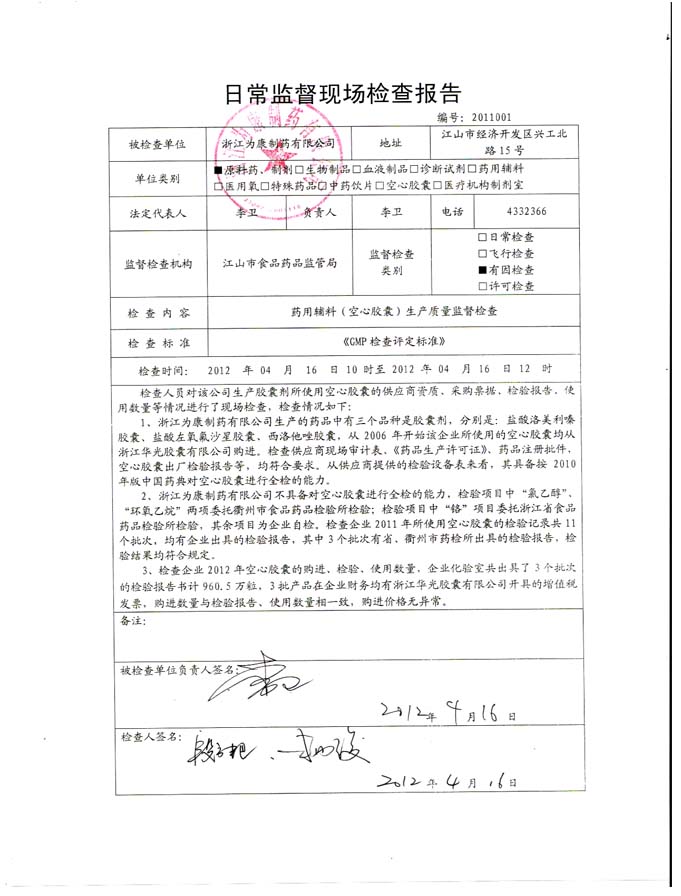 日常监督现场检查报告
编号：2011001
被检查单位 浙江为康制药有限公司 地址 江山市经济开发区兴工北路15号
单位类别 ■原料药、制剂□生物制品□血液制品□诊断试剂□药用辅料
□医用氧□特殊药品□中药饮片□空心胶囊□医疗机构制剂室
法定代表人 李卫 负责人 李卫 电话 4332366
监督检查机构 江山市食品药品监管局 监督检查类别
□日常检查
□飞行检查
■有因检查
□许可检查
检查内容 药用辅料（空心胶囊）生产质量监督检查
检查标准 《GMP检查评定标准》
检查时间： 2012 年 04 月 16 日 10 时至 2012 年 04 月 16 日 12 时
检查人员对该公司生产胶囊剂所使用空心胶囊的供应商资质、采购票据、检验报告、使
用数量等情况进行了现场检查，检查情况如下：
1、浙江为康制药有限公司生产的药品中有三个品种是胶囊剂，分别是：盐酸洛美利嗪
胶囊、盐酸左氧氟沙星胶囊、西洛他唑胶囊，从 2006 年开始该企业所使用的空心胶囊均从
浙江华光胶囊有限公司购进。检查供应商现场审计表、《药品生产许可证》、药品注册批件，
空心胶囊出厂检验报告等，均符合要求。从供应商提供的检验设备表来看，其具备按 2010
年版中国药典对空心胶囊进行全检的能力。
2、浙江为康制药有限公司不具备对空心胶囊进行全检的能力，检验项目中“氯乙醇”、
“环氧乙烷”两项委托衢州市食品药品检验所检验；检验项目中“铬”项目委托浙江省食品
药品检验所检验，其余项目为企业自检。检查企业 2011 年所使用空心胶囊的检验记录共 11
个批次，均有企业出具的检验报告，其中 3 个批次有省、衢州市药检所出具的检验报告，检
验结果均符合规定。
3、检查企业 2012 年空心胶囊的购进、检验、使用数量，企业化验室共出具了 3 个批次
的检验报告书计 960.5 万粒，3 批产品在企业财务均有浙江华光胶囊有限公司开具的增值税
发票，购进数量与检验报告、使用数量相一致，购进价格无异常。
备注：
被检查单位负责人签名：
2012年 4月16日
检查人签名：
2012年 4月 16日